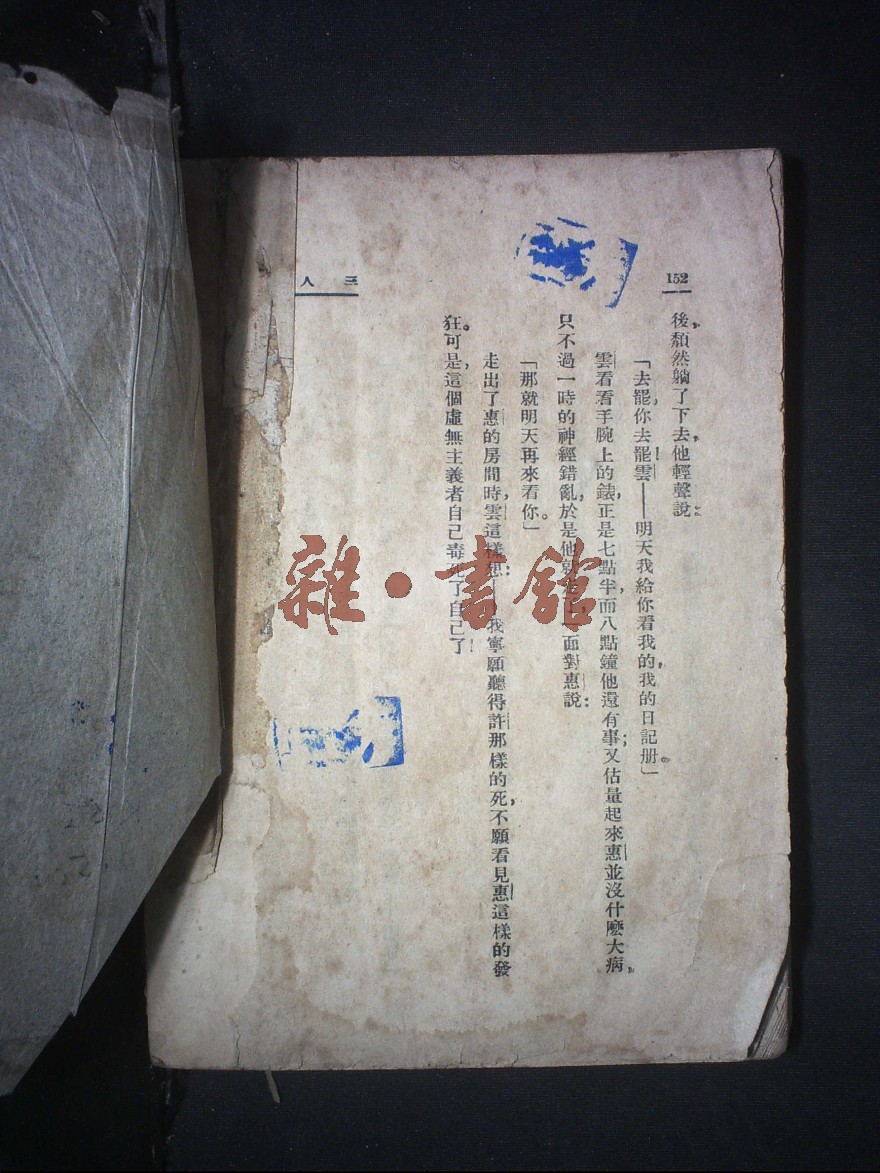 152
三人
後，頹然躺了下去，他輕聲說：
「去罷，你去罷！雲——明天我給你看我的，我的日記册。」
雲看看手腕上的錶，正是七點半，而八點鐘他還有事；又估量起來惠並沒什麽大病，
只不過一時的神經錯亂，於是他就 一面對惠說：
「那就明天再來看你。」
走出了惠的房間時，雲這樣想：我寧願聽得許那樣的死，不願看見惠這樣的發
狂。可是，這個虛無主義者自己毒死了自己了！
雜·書館